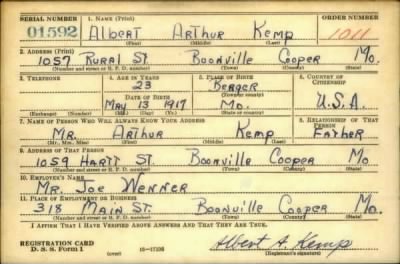 SERIAL NUMBER 1. NAME (Print) ORDER NUMBER
01592 Albert Arthur Kemp 1011
(First) (Middle) (Last)
2. ADDRESS (Print)
1057 Rural St. Boonville Cooper Mo.
(Number and street or R. F. D. number) (Town) (County) (State)
3. TELEPHONE 4. AGE IN YEARS 5. PLACE OF BIRTH 6. COUNTRY OF CITIZENSHIP
23 Berger
DATE OF BIRTH (Town or county)
May 13 1917 Mo. U.S.A.
(Exchange) (Number) (Mo.) (Day) (Yr.) (State or country)
7. NAME OF PERSON WHO WILL ALWAYS KNOW YOUR ADDRESS 8. RELATIONSHIP OF THAT PERSON
Mr. Arthur Kemp Father
(Mr., Mrs., Miss) (First) (Middle) (Last)
9. ADDRESS OF THAT PERSON
1059 Hartt St. Boonville Cooper Mo
(Number and street or R. F. D. number) (Town) (County) (State)
10. EMPLOYER'S NAME
Mr. Joe Wenner
11. PLACE OF EMPLOYMENT OR BUSINESS
318 Main St. Boonville Cooper Mo.
(Number and street or R. F. D. number) (Town) (County) (State)
I AFFIRM THAT I HAVE VERIFIED ABOVE ANSWERS AND THAT THEY ARE TRUE.
REGISTRATION CARD
D. S. S. Form 1 (over) Albert A. Kemp
(Registrant's signature)